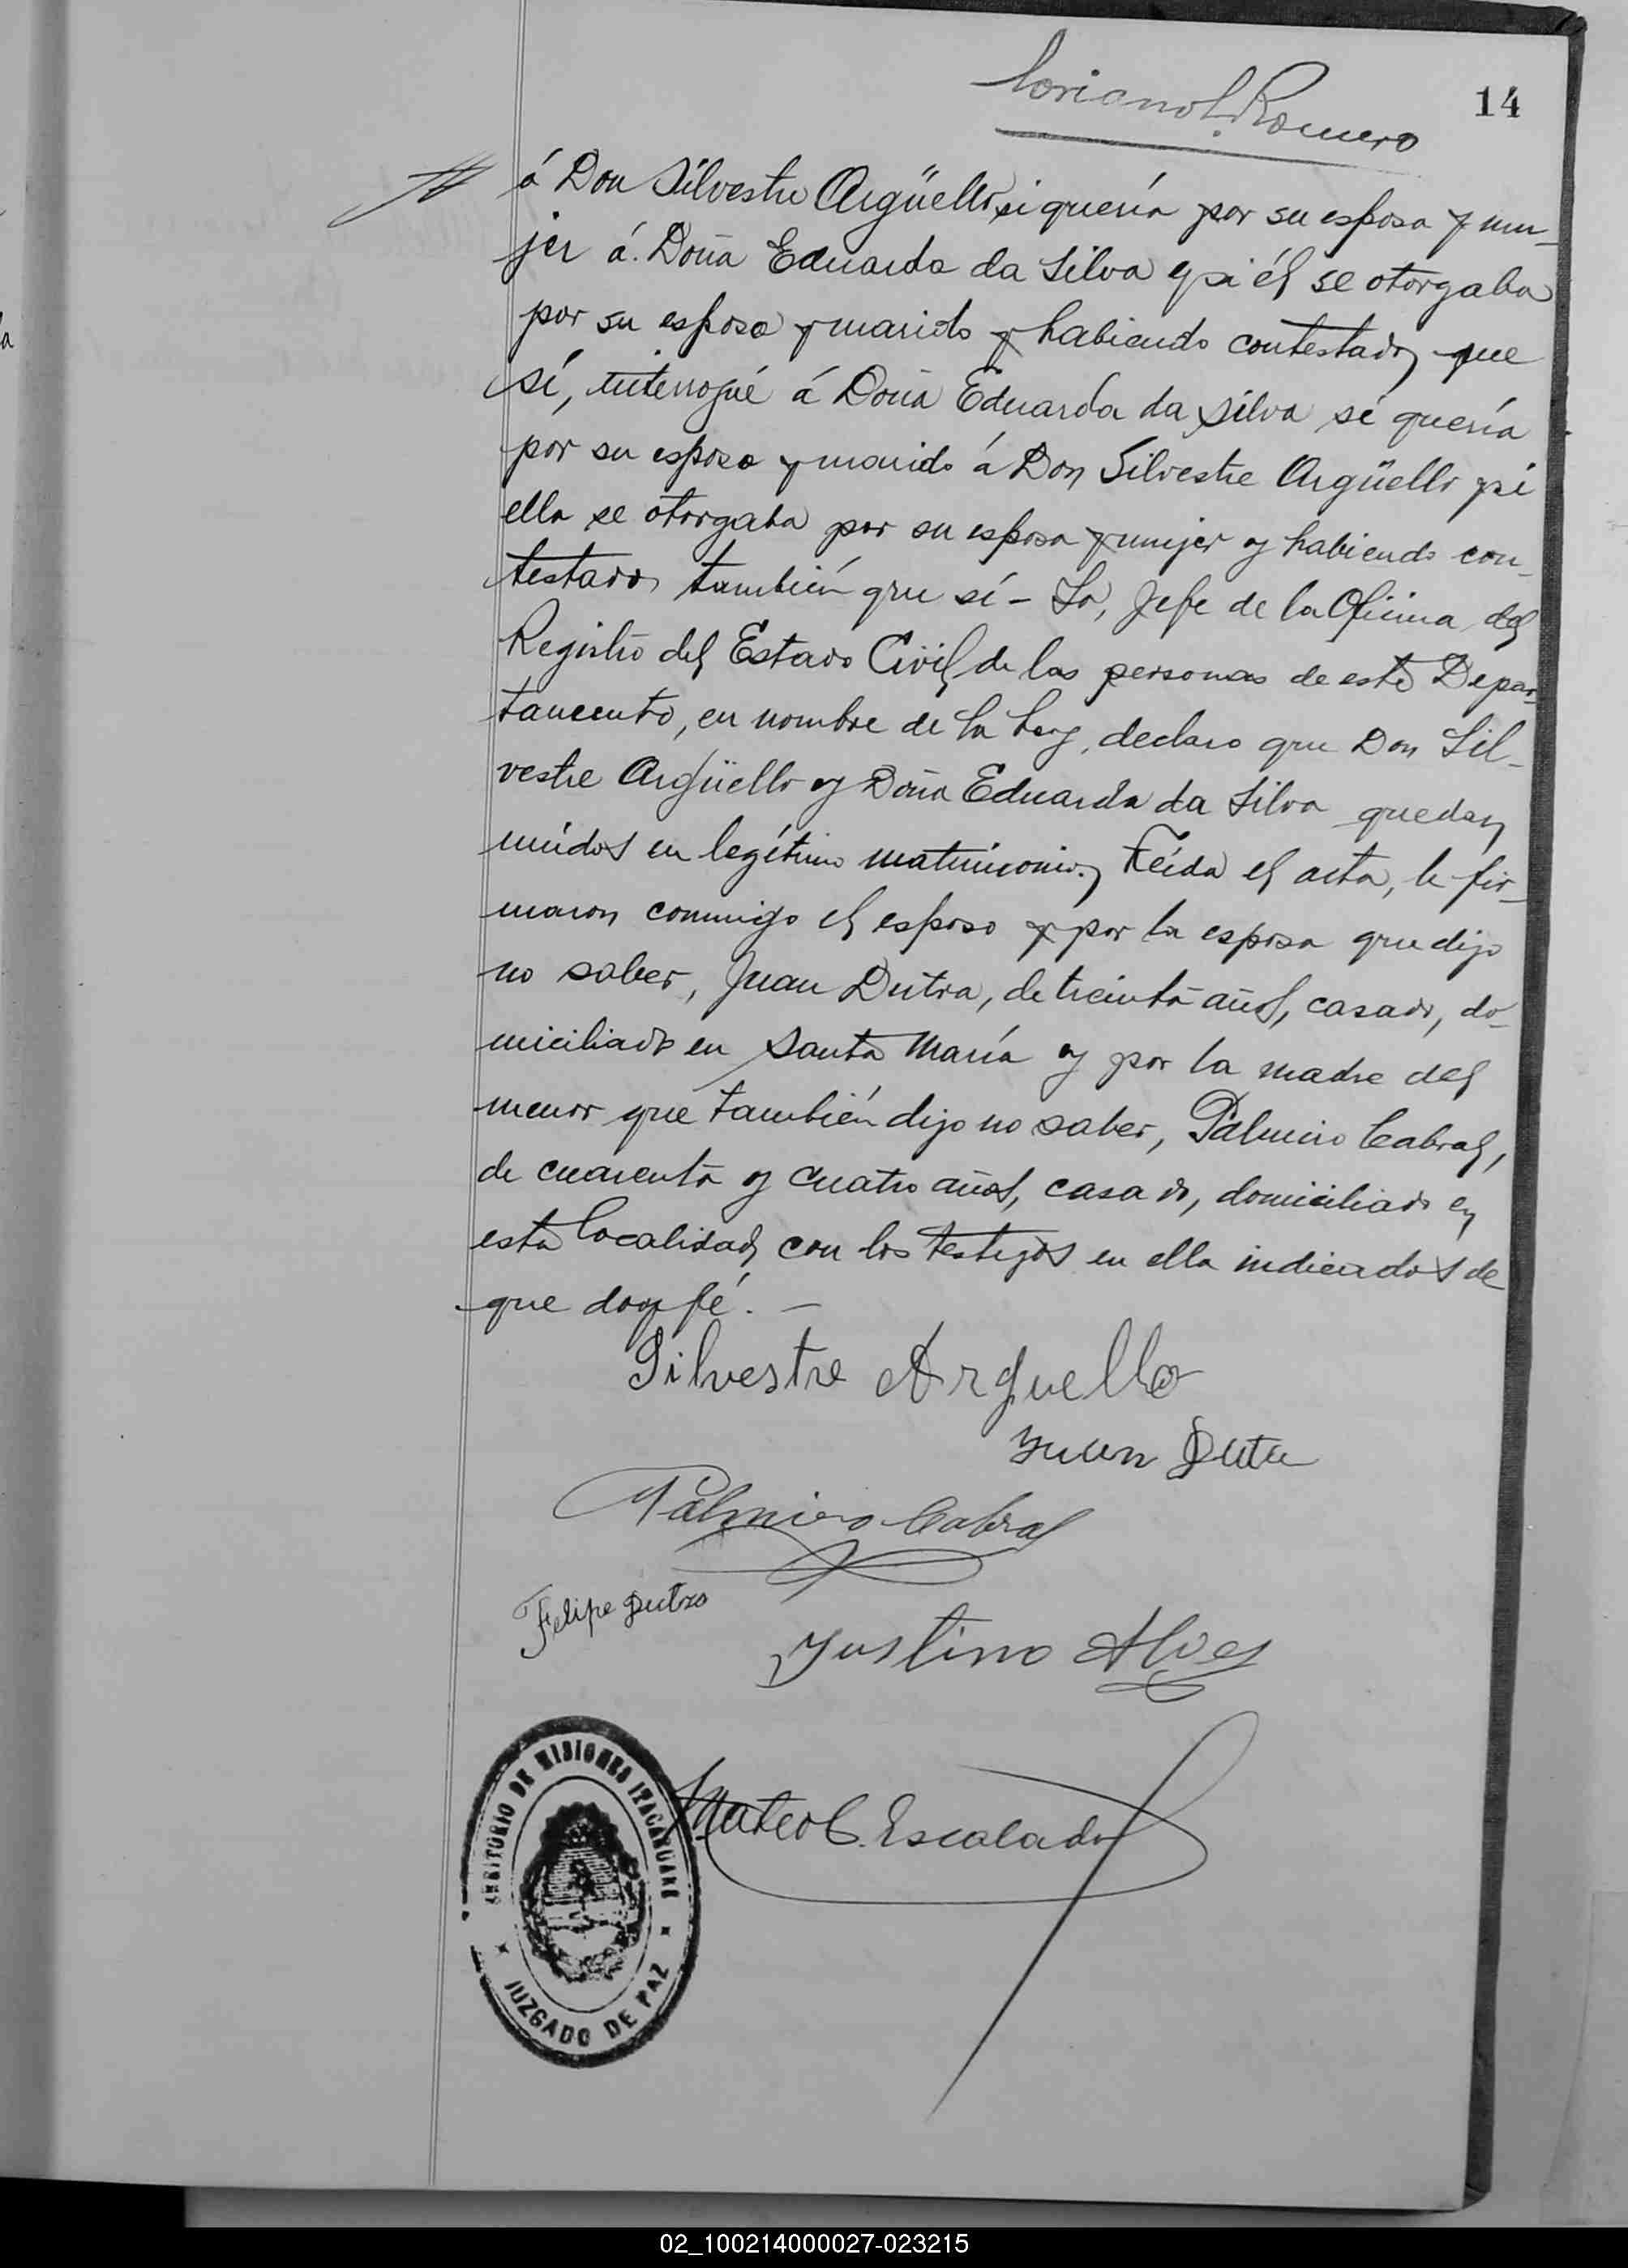 Loriano L. Romero
14
á Don Silvestre Argüello, si quería por su esposa y mu-
jer á Doña Eduarda da Silva y si él se otorgaba
por su esposo y marido y habiendo contestado que
sí, interrogué á Doña Eduarda da Silva si quería
por su esposo y marido á Don Silvestre Argüello y si
ella se otorgaba por su esposa y mujer y habiendo con-
testado también que sí – Yo, Jefe de la Oficina del
Registro del Estado Civil de las personas de este Depar-
tamento, en nombre de la Ley, declaro que Don Sil-
vestre Argüello y Doña Eduarda da Silva quedan
unidos en legítimo matrimonio. Leída el acta, la fir-
maron conmigo el esposo y por la esposa que dijo
no saber, Juan Dutra, de treinta años, casado, do-
miciliado en Santa María y por la madre del
menor que también dijo no saber, Palmiro Cabral,
de cuarenta y cuatro años, casado, domiciliado en
esta localidad, con los testigos en ella indicados de
que doy fé. –
Silvestre Arguello
Juan Dutra
Palmiro Cabral
Felipe Dutra
Justino Alves
Mateo C. Escalada
TERRITORIO DE MISIONES ITACARUARE
JUZGADO DE PAZ
02_100214000027-023215